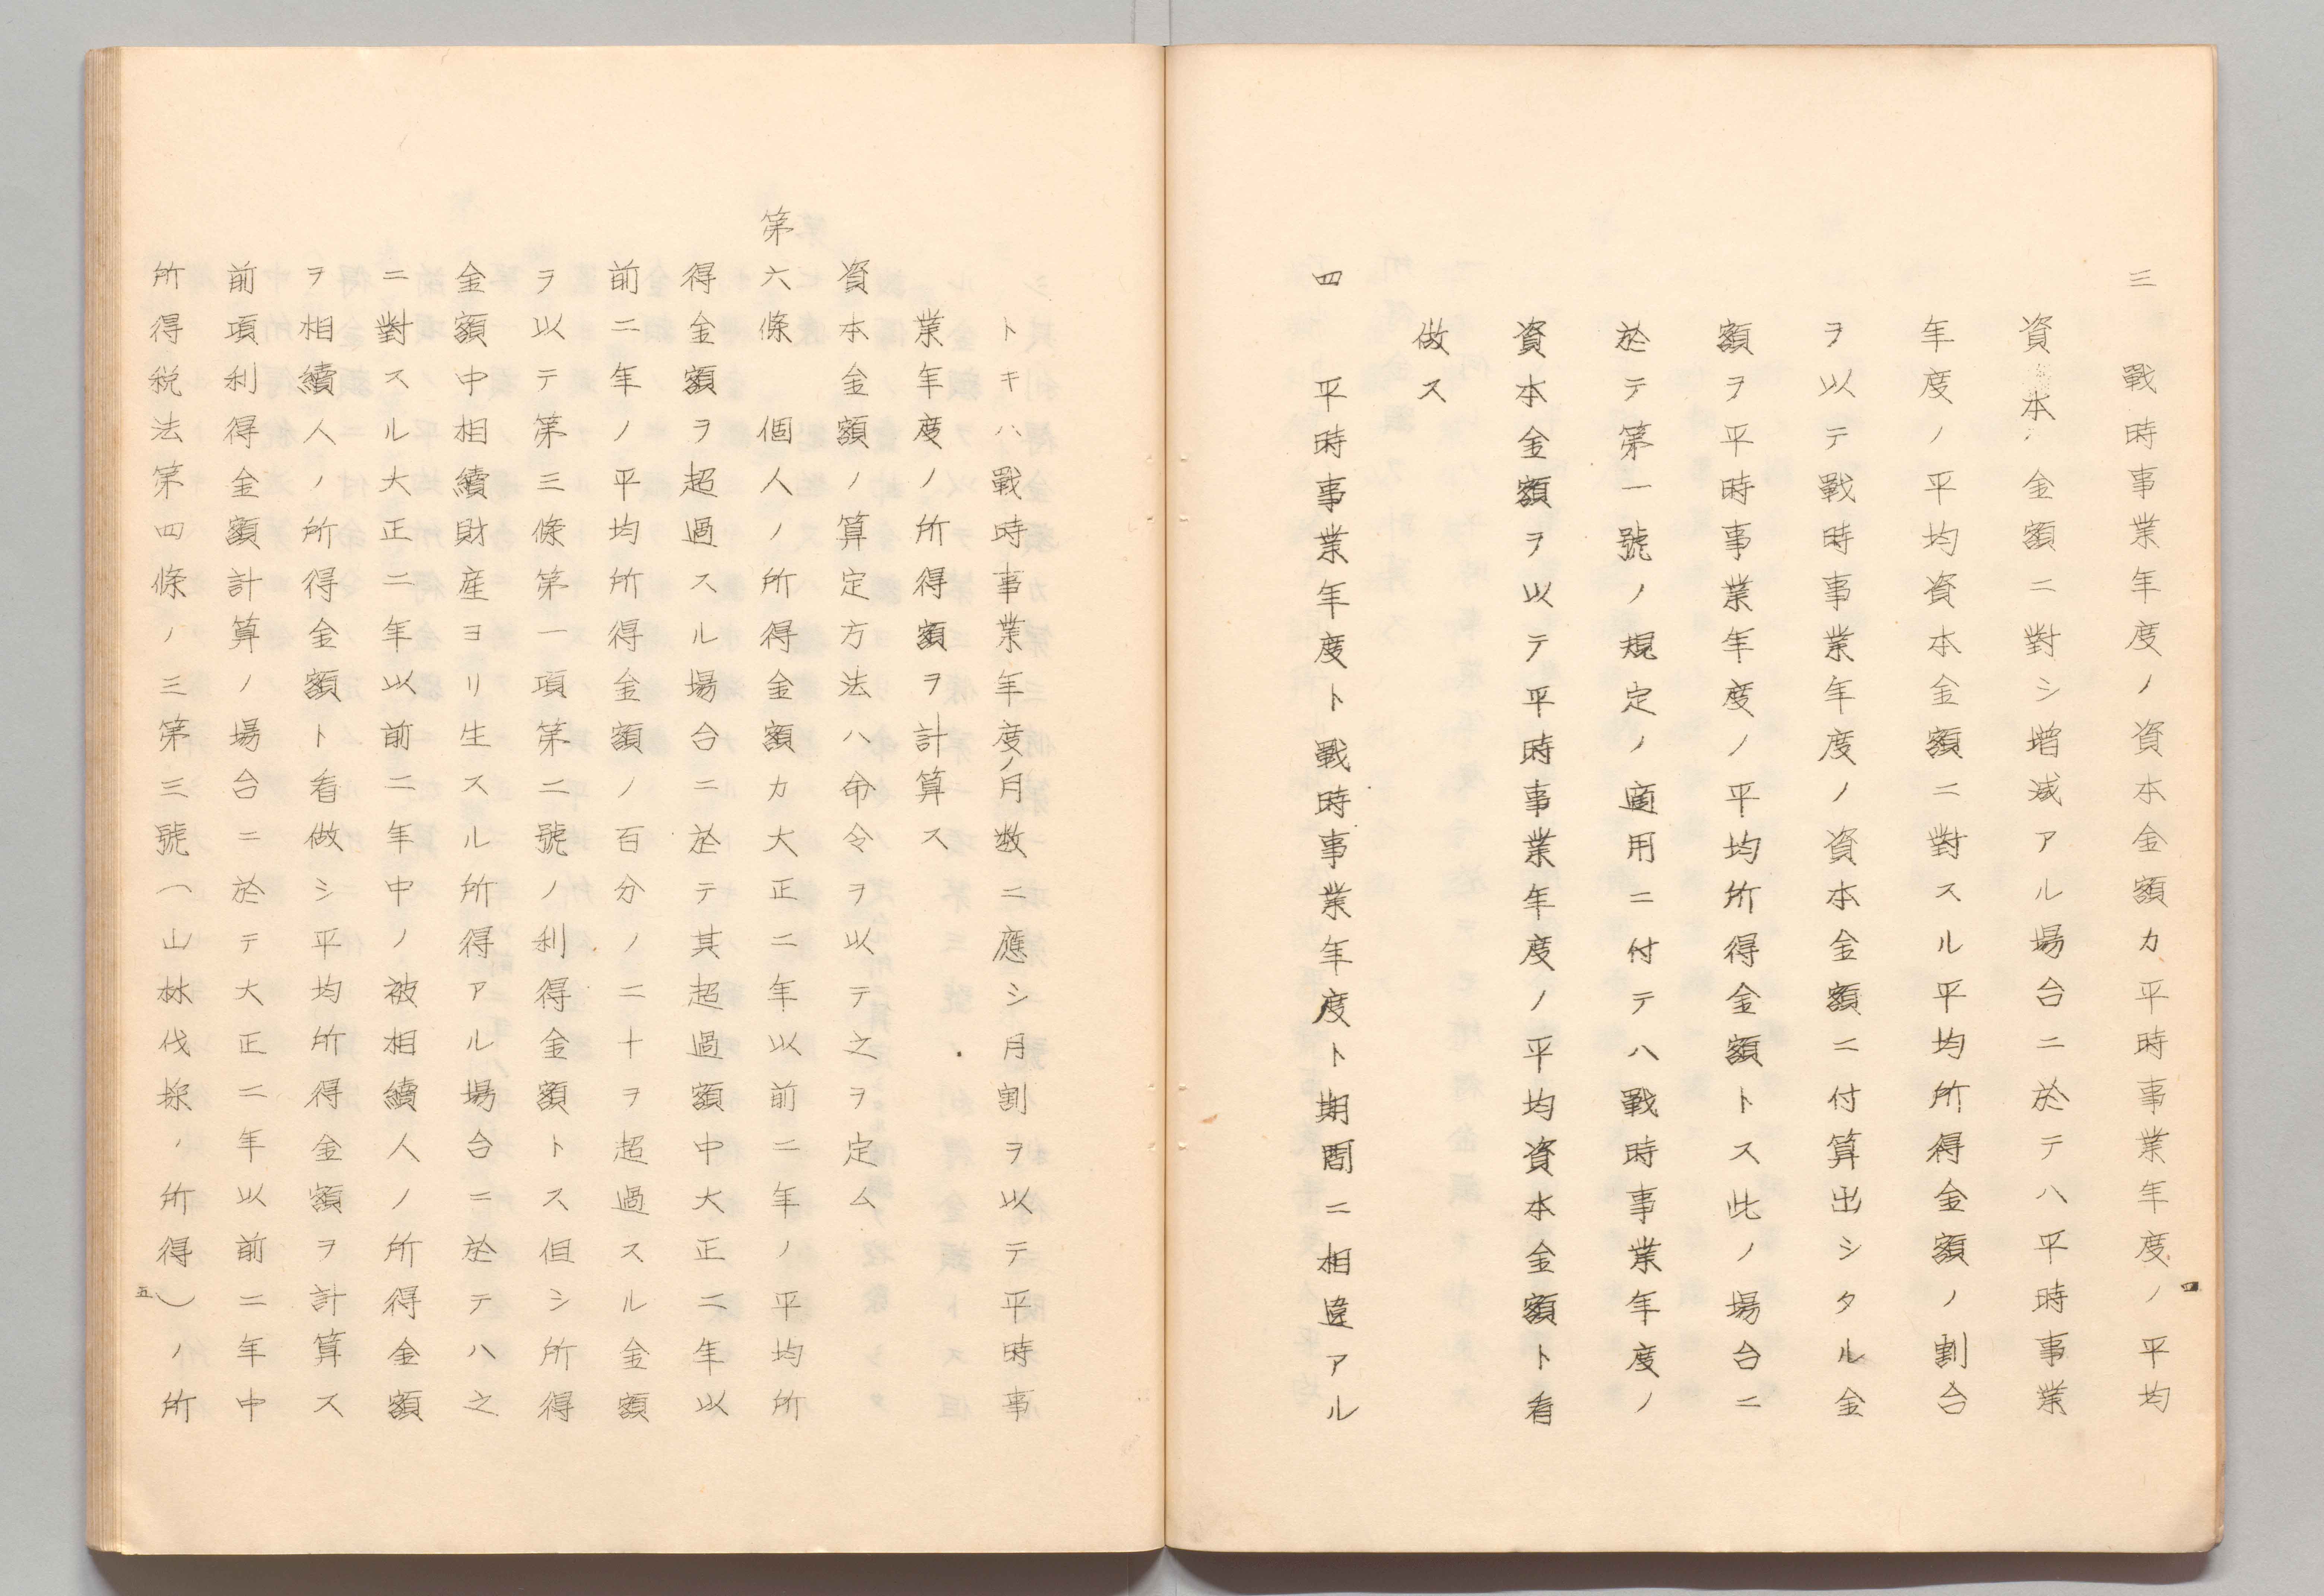 三　戰時事業年度ノ資本金額カ平時事業年度ノ平均
資本金額ニ對シ増減アル場合ニ於テハ平時事業
年度ノ平均資本金額ニ對スル平均所得金額ノ割合
ヲ以テ戰時事業年度ノ資本金額ニ付算出シタル金
額ヲ平時事業年度ノ平均所得金額トス此ノ場合ニ
於テ第一號ノ規定ノ適用ニ付テハ戰時事業年度ノ
資本金額ヲ以テ平時事業年度ノ平均資本金額ト看
做ス
四　平時事業年度ト戰時事業年度ト期間ニ相違アル
四
トキハ戰時事業年度ノ月数ニ應シ月割ヲ以テ平時事
業年度ノ所得額ヲ計算ス
資本金額ノ算定方法ハ命令ヲ以テ之ヲ定ム
第六條　個人ノ所得金額カ大正二年以前二年ノ平均所
得金額ヲ超過スル場合ニ於テ其超過額中大正二年以
前二年ノ平均所得金額ノ百分ノ二十ヲ超過スル金額
ヲ以テ第三條第一項第二號ノ利得金額トス但シ所得
金額中相續財産ヨリ生スル所得アル場合ニ於テハ之
ニ對スル大正二年以前二年中ノ被相續人ノ所得金額
ヲ相續人ノ所得金額ト看做シ平均所得金額ヲ計算ス
前項利得金額計算ノ場合ニ於テ大正二年以前二年中
所得税法第四條ノ三第三號（山林伐採ノ所得）ノ所
五